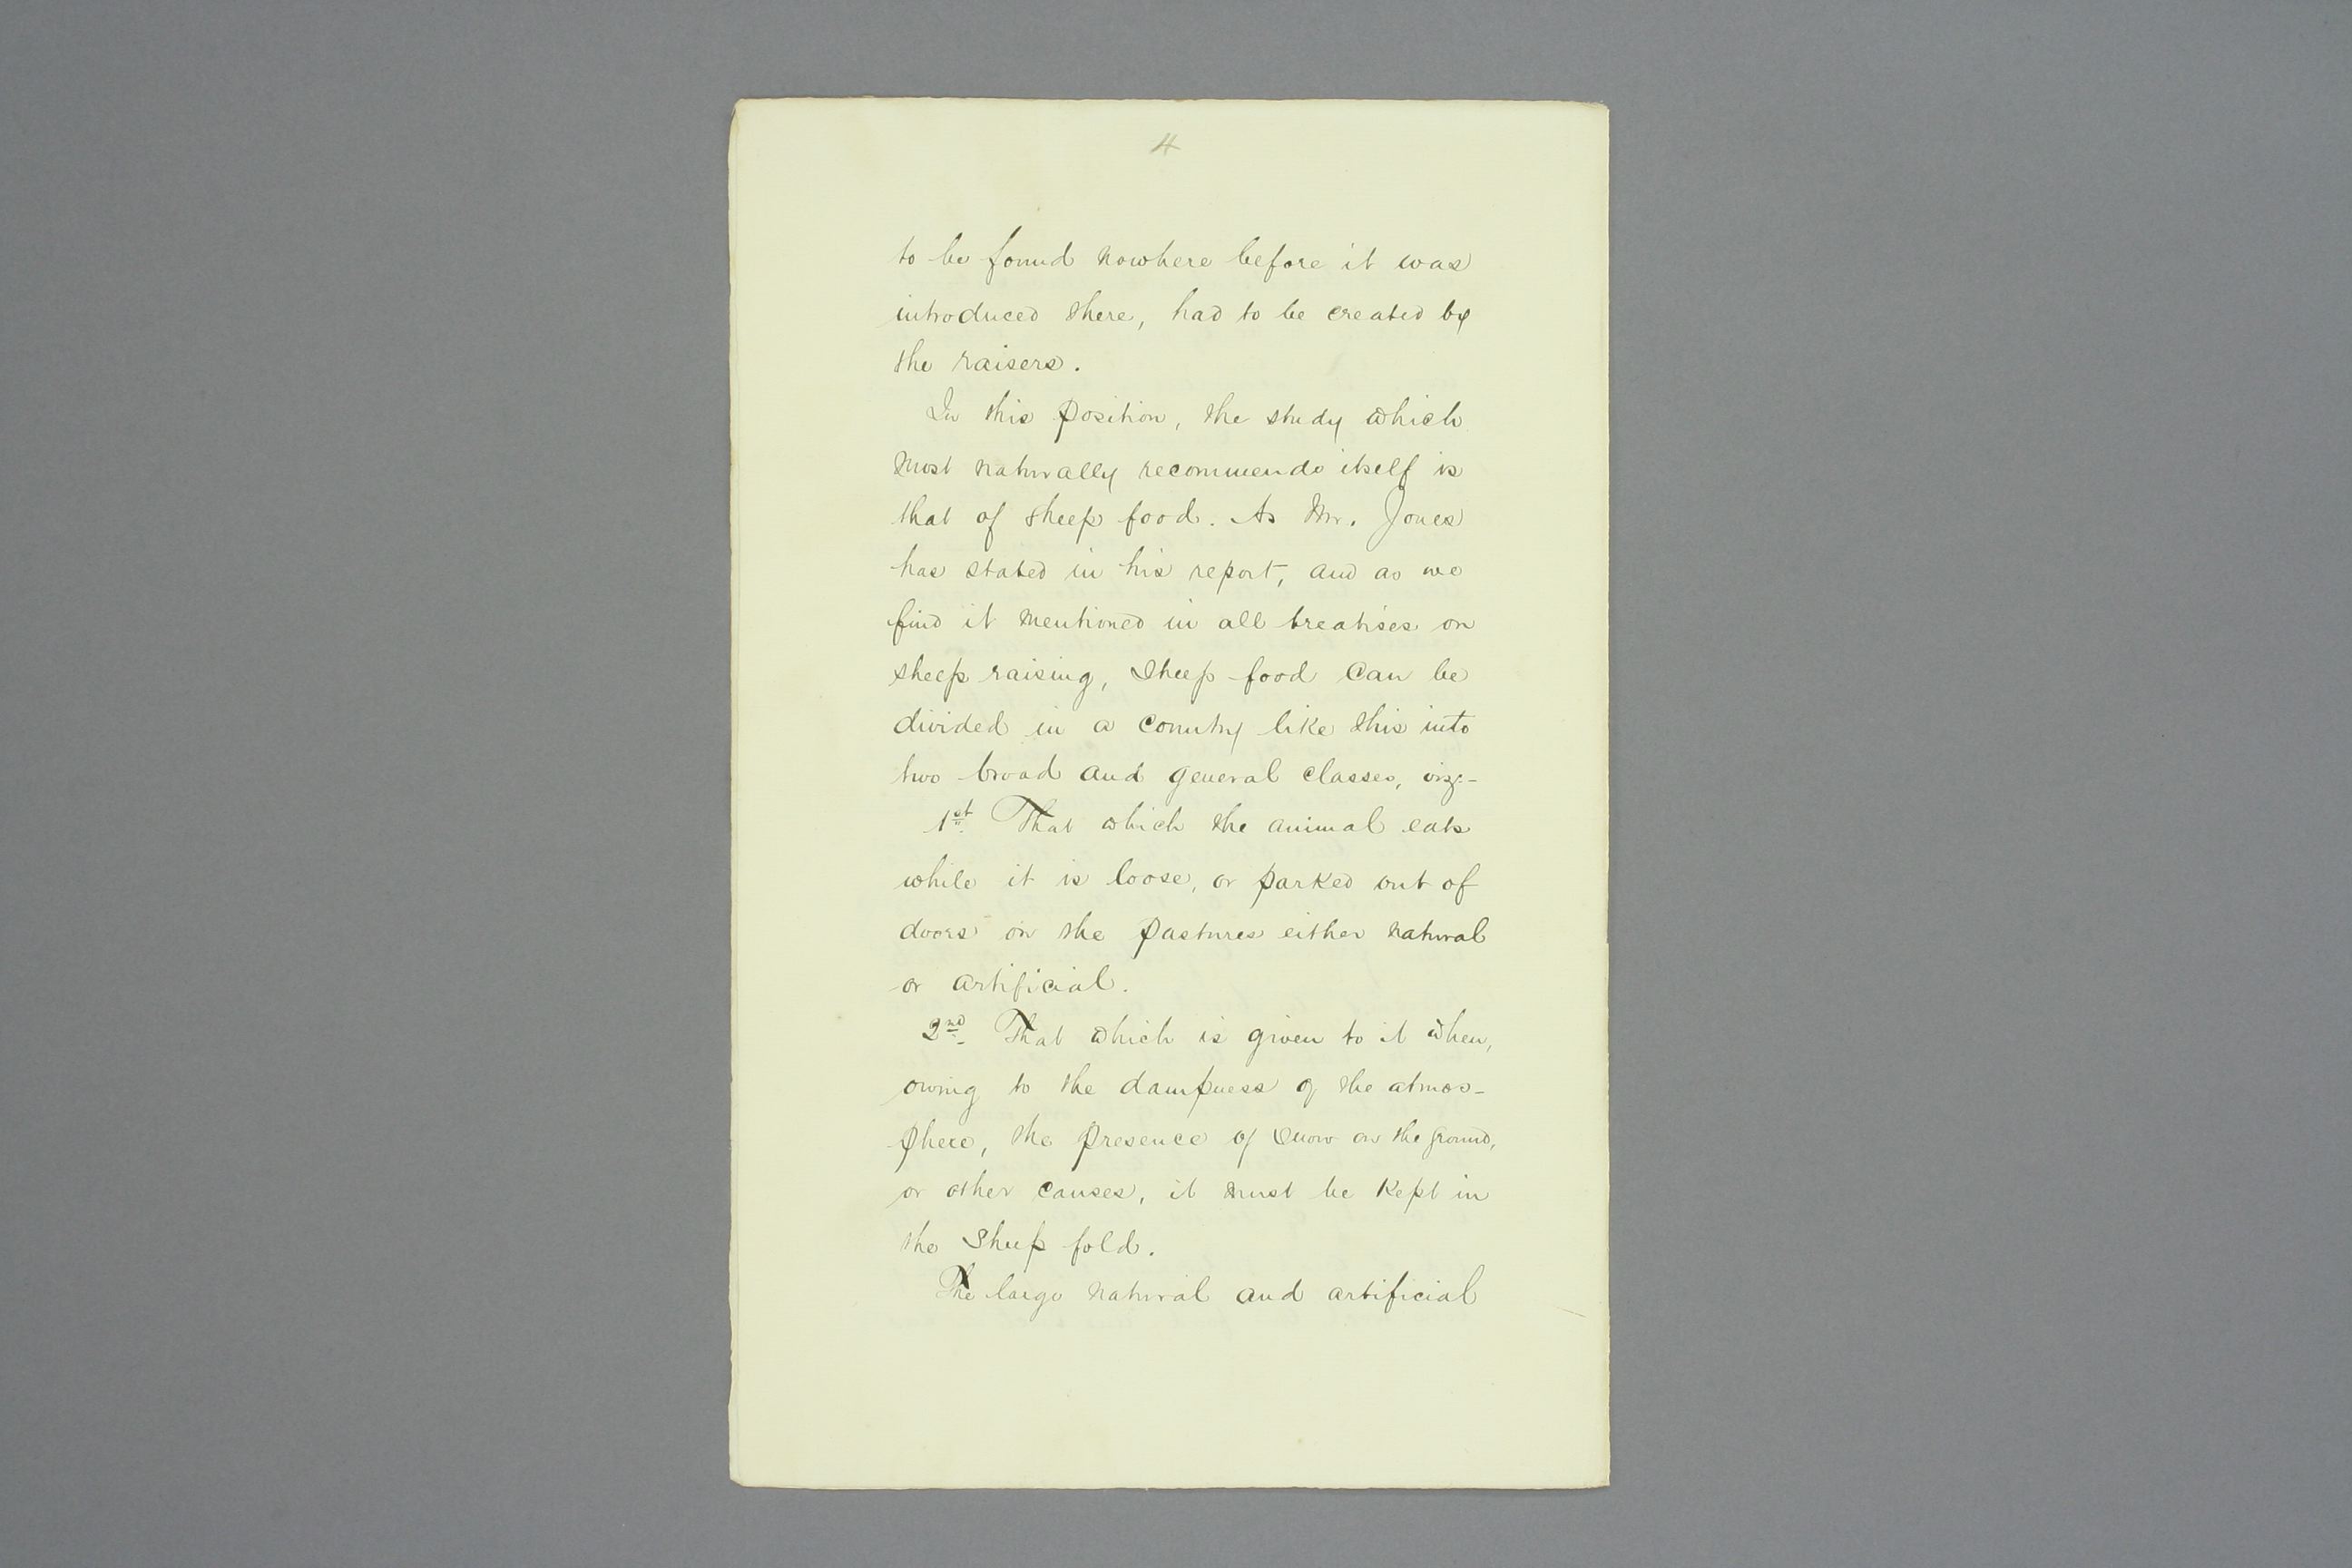 4
to be found nowhere before it was
introduced there, had to be created by
the raisers.
In this position, the study which
most naturally recommends itself is
that of sheep food. As Mr. Jones
has stated in his report, and as we
find it mentioned in all treatises on
sheep raising, sheep food can be
divided in a country like this into
two broad and general classes, viz:-
1st. That which the animal eats
while it is loose, or parked out of
doors on the pastures either natural
or artificial.
2nd. That which is given to it when,
owing to the dampness of the atmos-
phere, the presence of snow on the ground,
or other causes, it must be kept in
the sheep fold.
The large natural and artificial